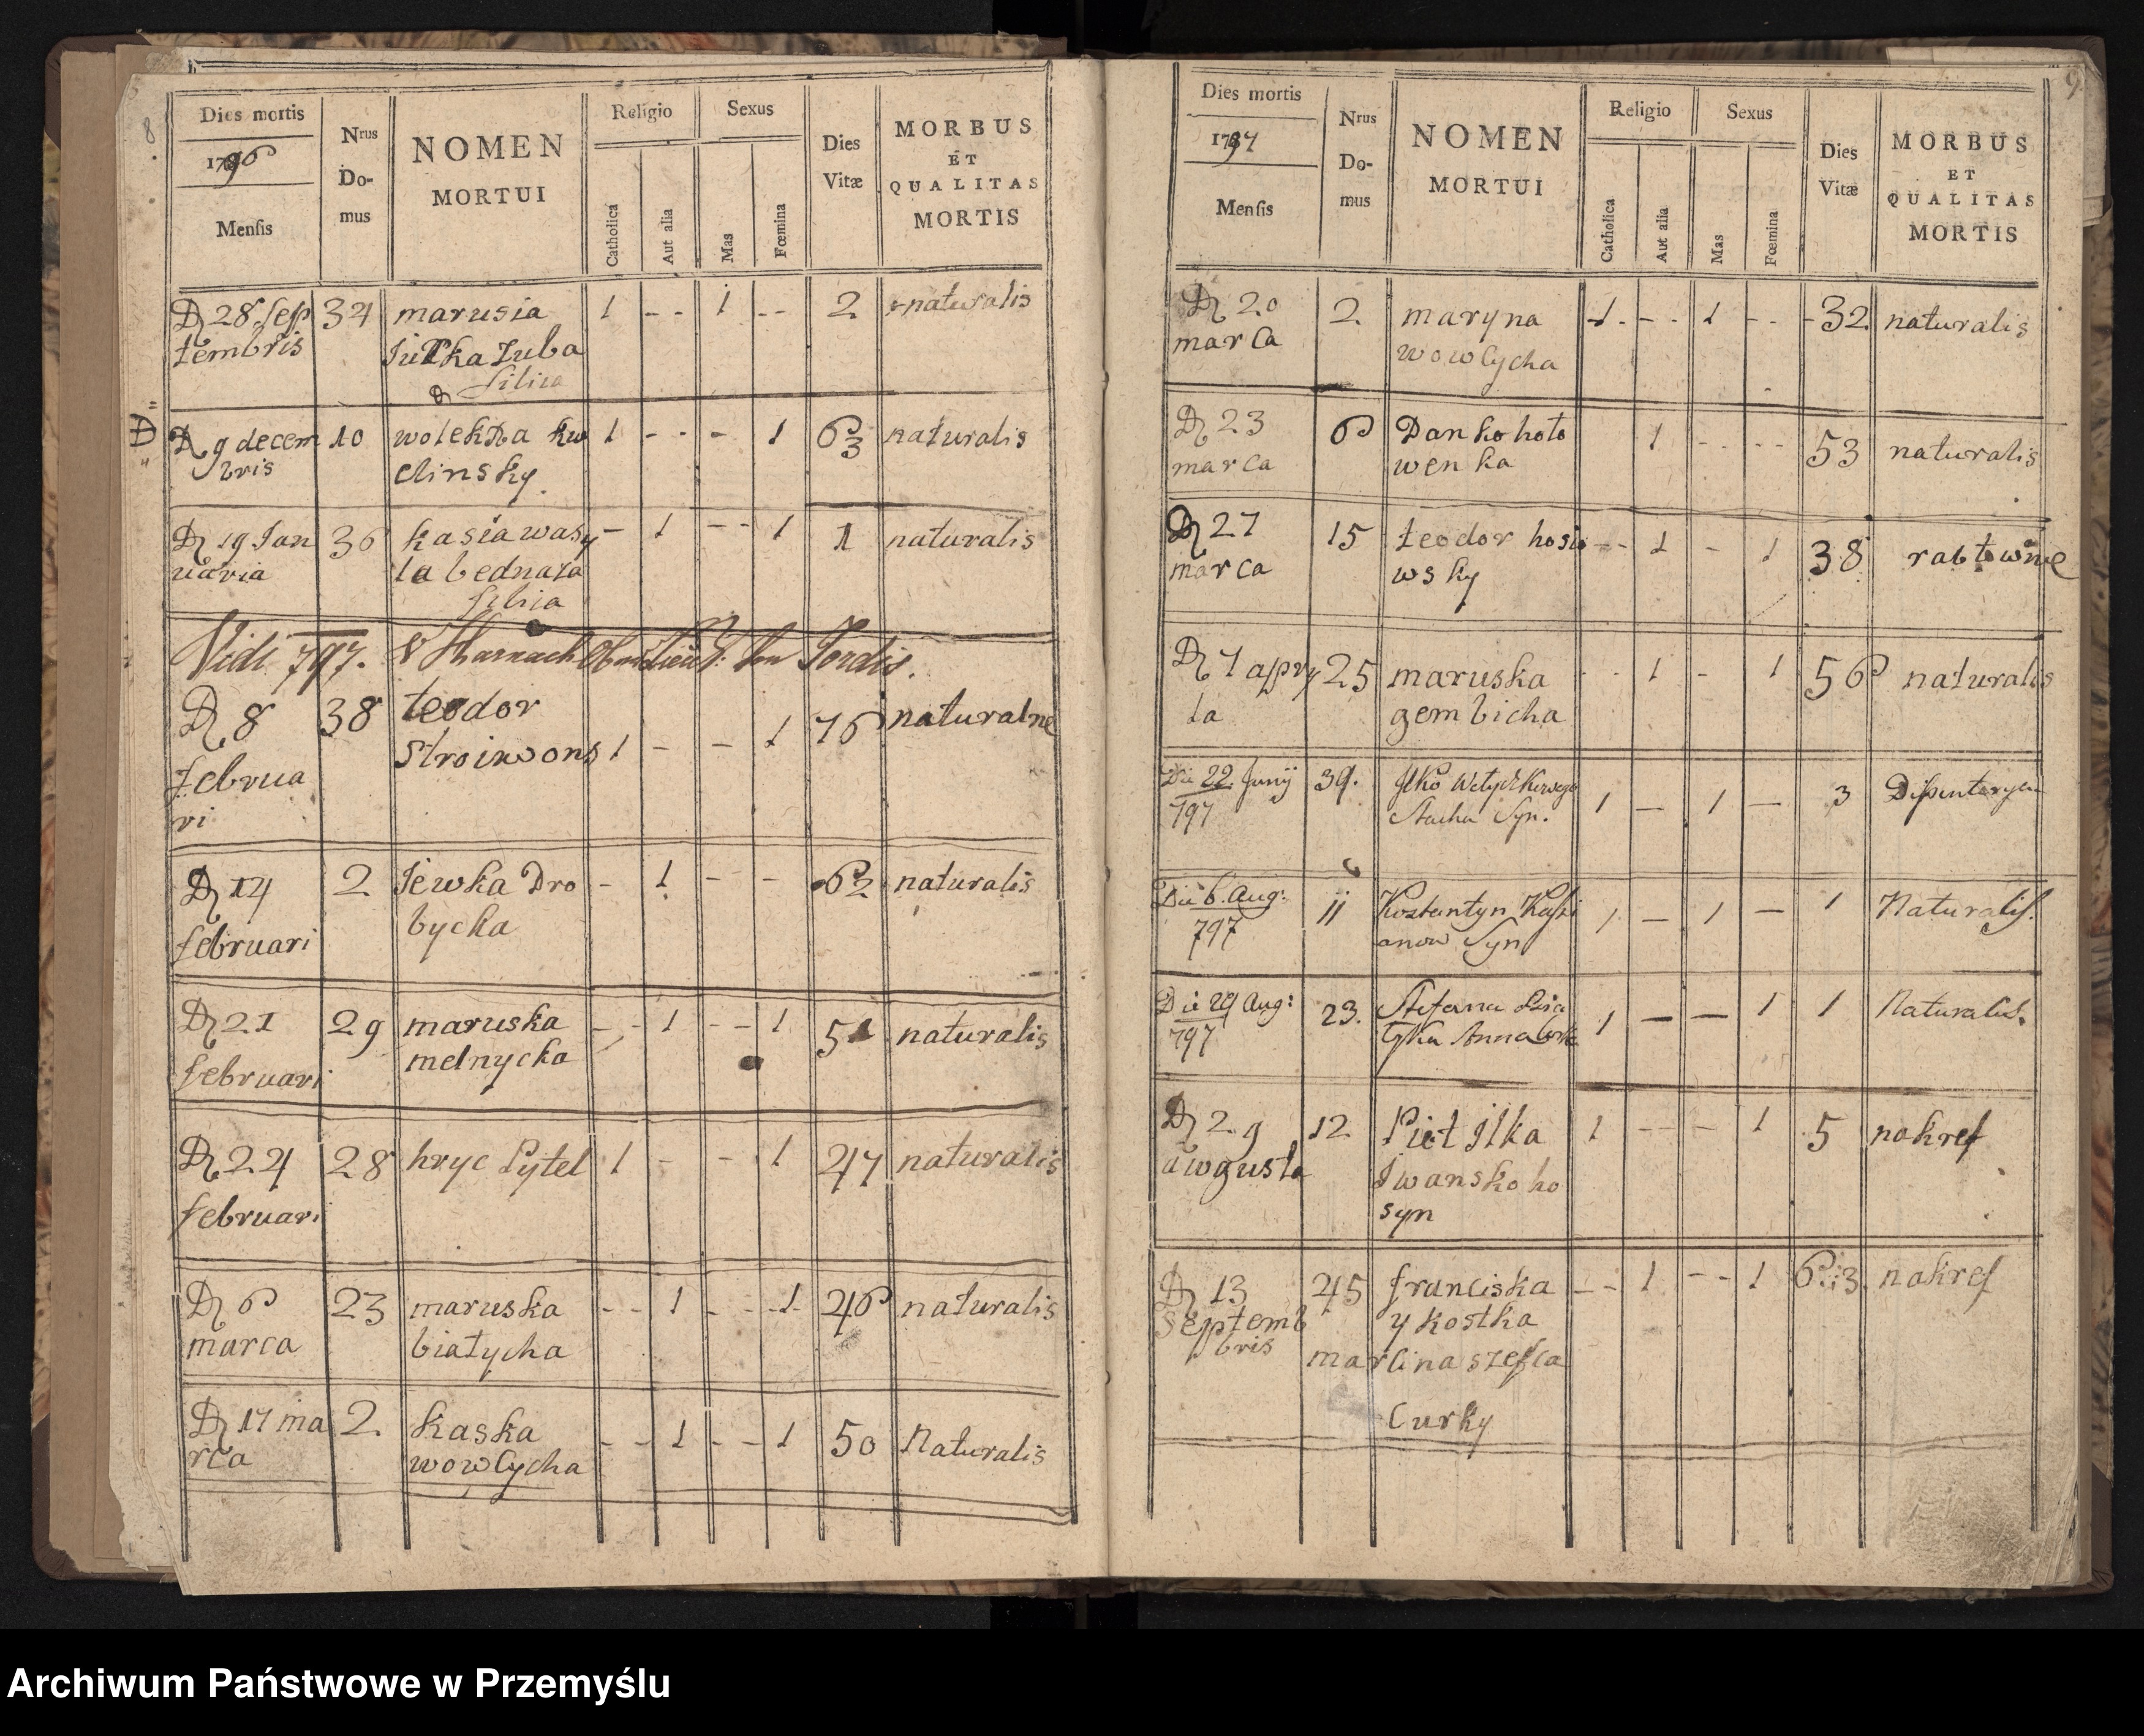 8
Dies mortis
1796
Mensis
Nrus
Do-
mus
NOMEN
MORTUI
Religio
Catholica
Aut alia
Sexus
Mas
Fœmina
Dies
Vitæ
MORBUS
ET
QUALITAS
MORTIS
D 28 Sep 34 marusia 1 - - 1 - - 2 naturalis
tembris
filia
D 9 decem 10 1 - - - 1 63 naturalis
bris elinsky
D 19 Jan 36 kasia wasy - 1 - - 1 1 naturalis
uaria la bednaza
filia
Vidi 797.
D 8 38 teodor 1 - - 1 76 naturalne
februa
ri
D 14 2 Jewka Dro - 1 - - 62 naturalis
februari bycka
D 21 29 maruska - - 1 - - 1 51 naturalis
februari melnycka
D 24 28 hryc Pytel 1 - - 1 47 naturalis
februari
D 6 23 maruska - - 1 - - 1 46 naturalis
marca białycha
D 17 ma 2. kaska - - 1 - - 1 50 Naturalis
rca wowcycha
9
Dies mortis
1797
Mensis
Nrus
Do-
mus
NOMEN
MORTUI
Religio
Catholica
Aut alia
Sexus
Mas
Fœmina
Dies
Vitæ
MORBUS
ET
QUALITAS
MORTIS
D 20 2. maryna 1 - - 1 - - 32 naturalis
marca wowcycha
D 23 6 Danko hoło 1 - - - - 53 naturalis
marca wenka
D 27 15 teodor hosio - - 1 - 1 38 rabtowne
marca wsky
D 7 apry 25 maruska - - 1 - 1 56 naturalis
la gembicha
Die 22 Junij 39. Ilko 1 — 1 — 3
797 Stacha Syn.
Die 6. Aug: 11 Kostantyn Kasi 1 — 1 — 1 Naturalis.
797 anow Syn
Die 29 Aug: 23. 1 — — 1 1 Naturalis.
797 Anna
D 29 12 Piet Ilka 1 - - - 1 5 nakref
awgusta Iwanskoho
syn
D 13 45 franciska - - 1 - - 1 6.i3. nakref
Septemb y kostka
bris
marcina szefca
Curky
Archiwum Państwowe w Przemyślu